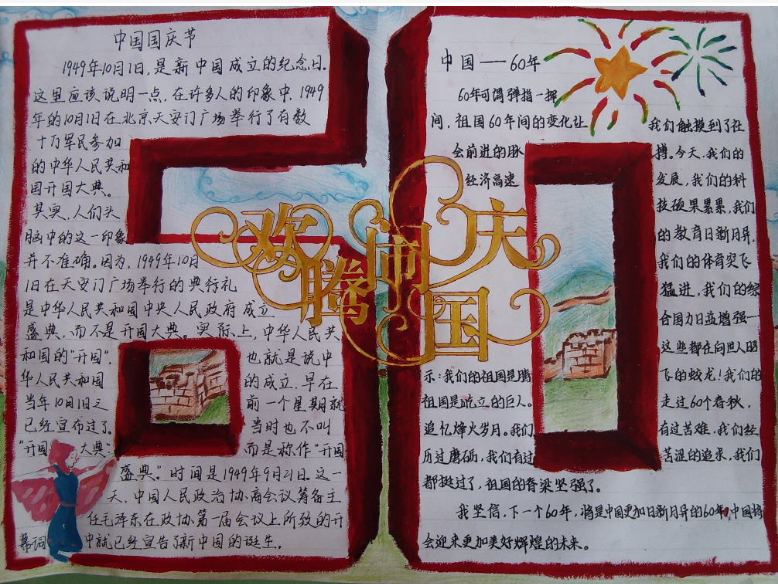 中国国庆节
1949年10月1日,是新中国成立的纪念日。
这里应该说明一点,在许多人的印象中,1949
年的10月1日在北京天安门广场举行了有数
十万军民参加
的中华人民共和
国开国大典。
其实,人们头
脑中的这一印象
并不准确。因为,1949年10月
1日在天安门广场举行的典行礼
是中华人民共和国中央人民政府成立
盛典,而不是开国大典。实际上,中华人民共
和国的“开国”,也就是说中
华人民共和国的成立,早在
当年10月1日之前一个星期就
已经宣布过了。当时也不叫
“开国大典:而是称作“开国
盛典”。时间是1949年9月21日。这一
天,中国人民政治协商会议筹备主
任毛泽东在政协第一届会议上所致的开
幕词中就已经宣告了新中国的诞生。
欢腾闹国庆
中国——60年
60年可谓弹指一挥
间,祖国60年间的变化让我们触摸到了社
会前进的脉搏。今天,我们的
经济高速发展,我们的科
技硕果累累,我们
的教育日新月异,
我们的体育突飞
猛进,我们的综
合国力日益增强…
这些都在向世人昭
示:我们的祖国是腾飞的蛟龙!我们的
祖国是屹立的巨人。走过60个春秋,
追忆烽火岁月。我们有过苦难,我们经
历过磨砺,我们有过苦涩的追求,我们
都挺过了,祖国的脊梁坚强了。
我坚信,下一个60年,将是中国更加日新月异的60年,中国将
会迎来更加美好辉煌的未来。